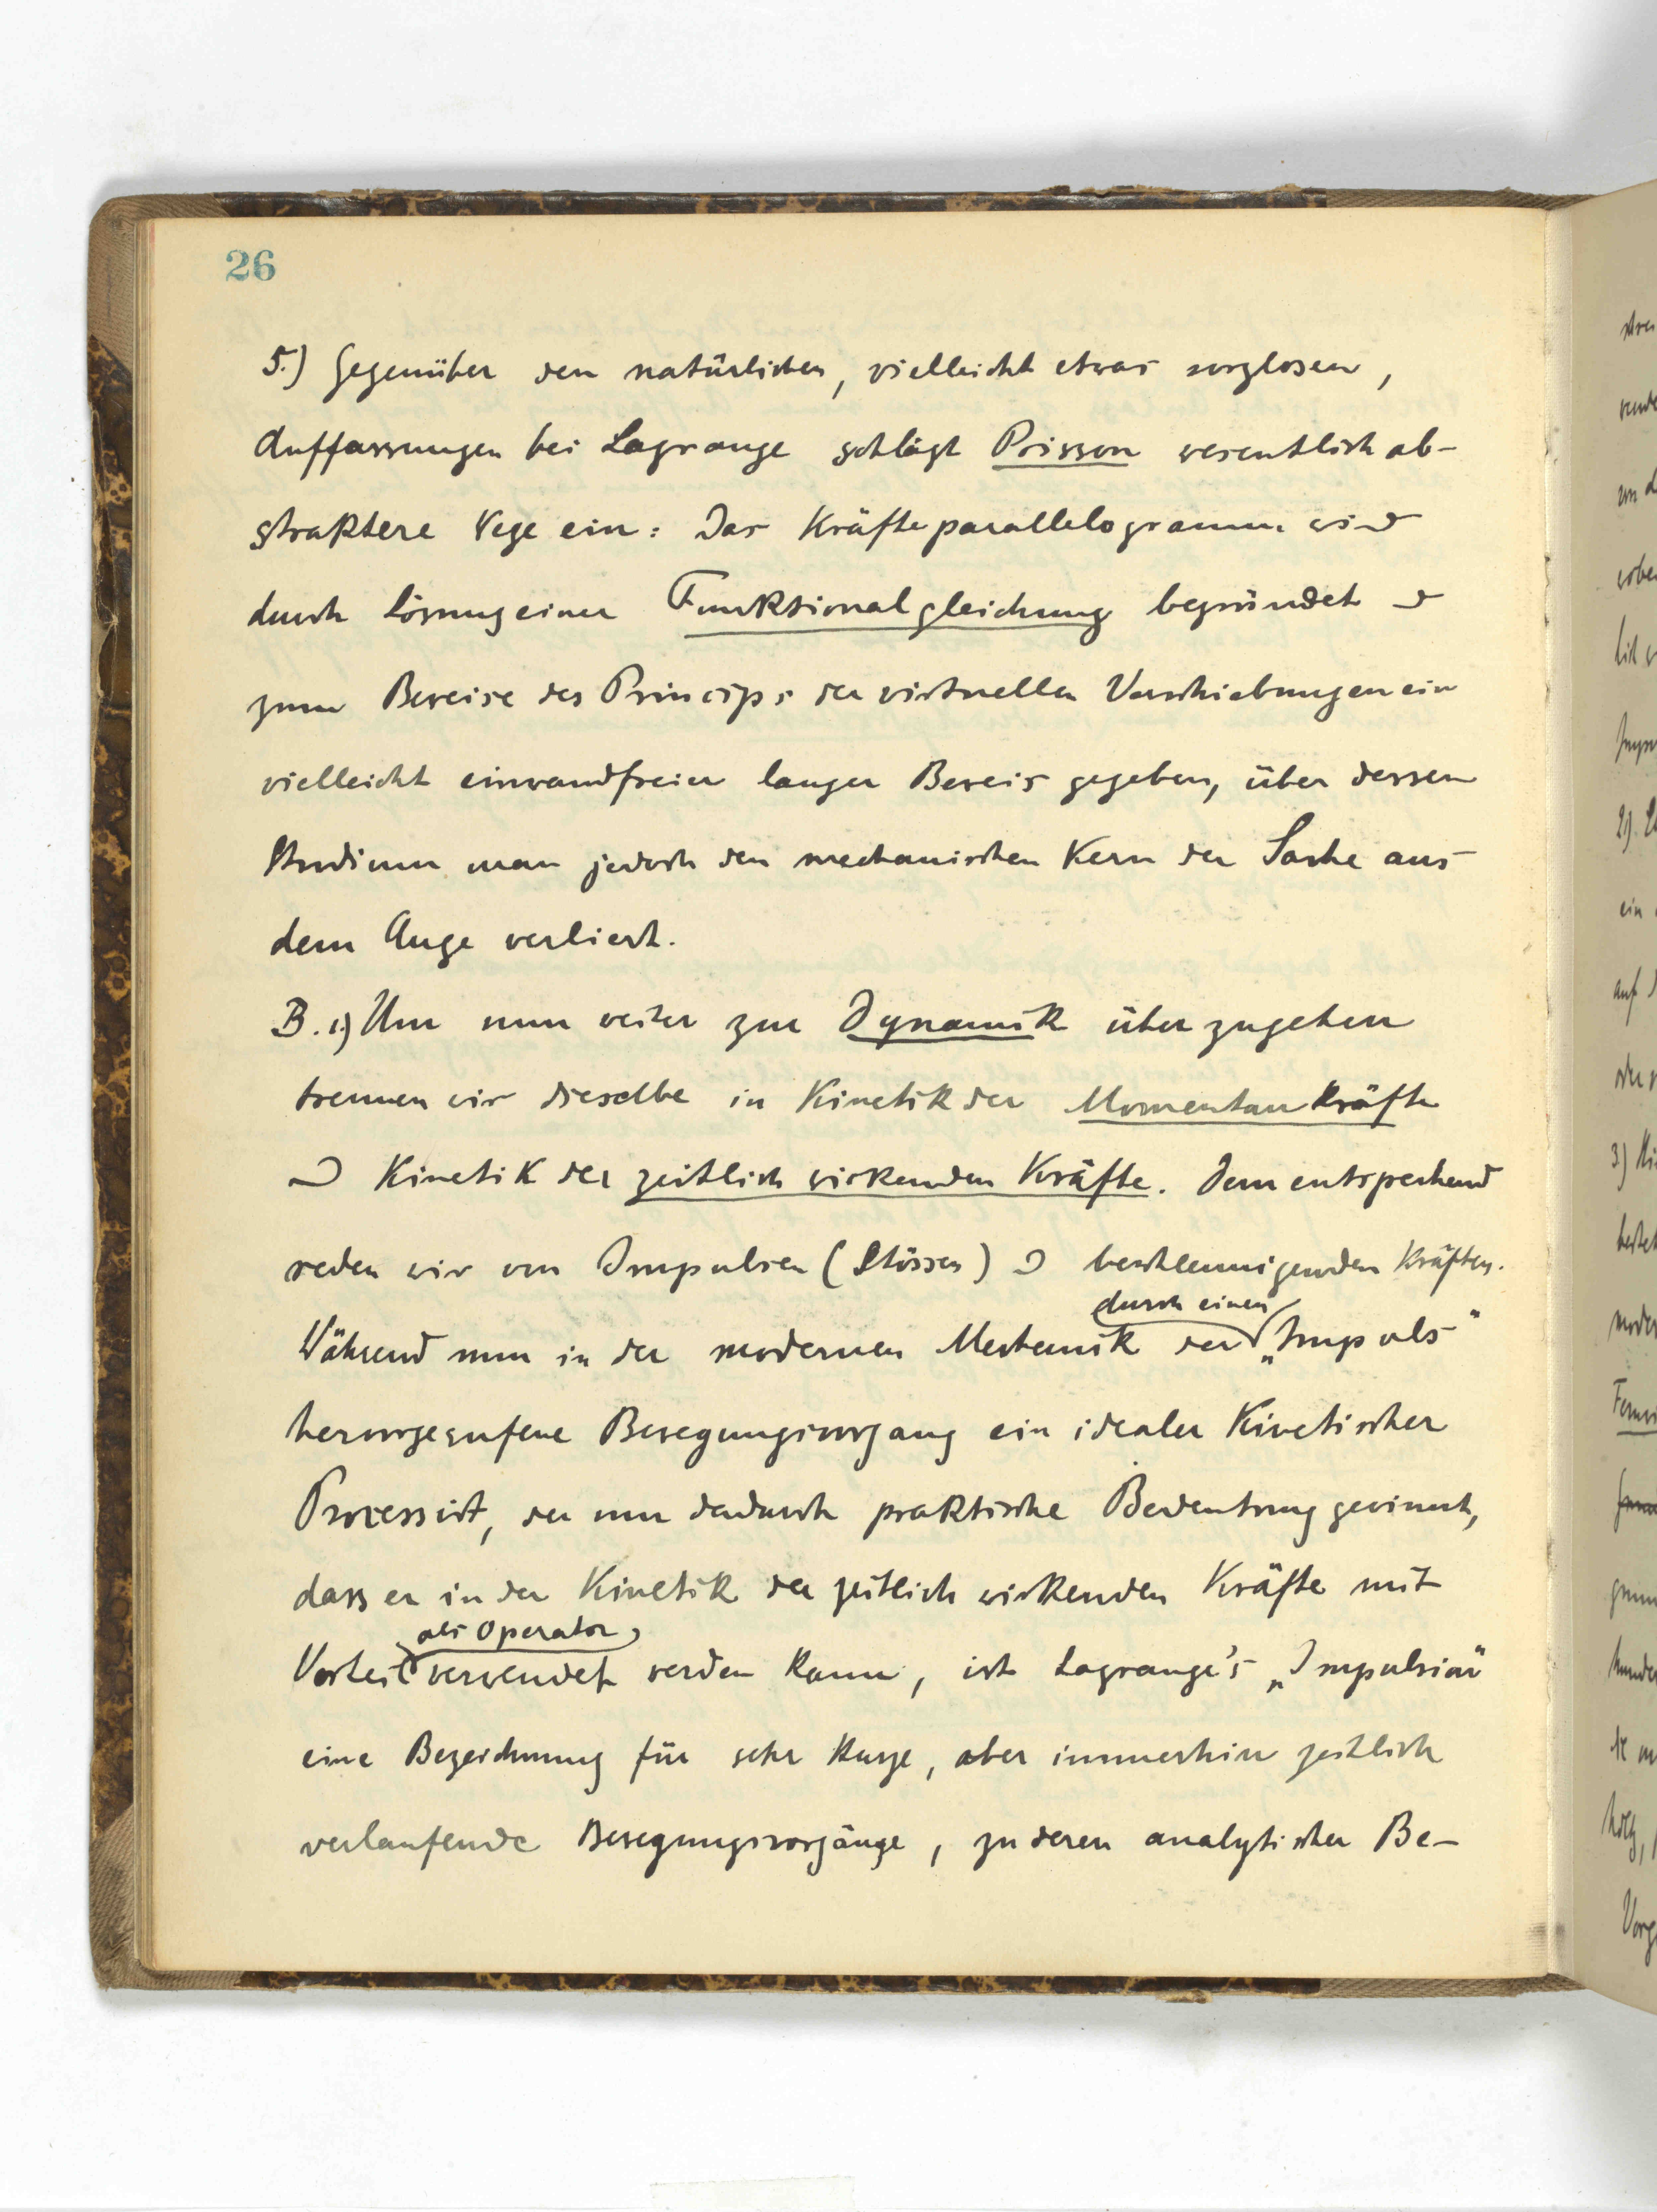 26
5.) Gegenüber den natürlichen, vielleicht etwas sorglosen,
Auffassungen bei Lagrange schlägt Poisson wesentlich ab-
straktere Wege ein: Das Kräfteparallelogramm wird
durch Lösung einer Funktionalgleichung begründet u
zum Beweise des Princips der virtuellen Verschiebungen ein
vielleicht einwandfreier langer Beweis gegeben, über dessen
Studium man jedoch den mechanischen Kern der Sache aus
dem Auge verliert.
B. 1) Um nun weiter zur Dynamik überzugehen
trennen wir dieselbe in Kinetik der Momentankräfte
u Kinetik der zeitlich wirkenden Kräfte. Dementsprechend
reden wir von Impulsen (Stössen) u beschleunigenden Kräften.
durch einen
Während nun in der modernen Mechanik der „Impuls"
hervorgerufene Bewegungsvorgang ein idealer Kinetischer
Prozess ist, der nur dadurch praktische Bedeutung gewinnt,
dass er in der Kinetik der zeitlich wirkenden Kräfte mit
als Operator
Vorteil verwendet werden kann, ist Lagrange's „Impulsion"
eine Bezeichnung für sehr kurze, aber immerhin zeitlich
verlaufende Bewegungsvorgänge, zu deren analytischer Be-